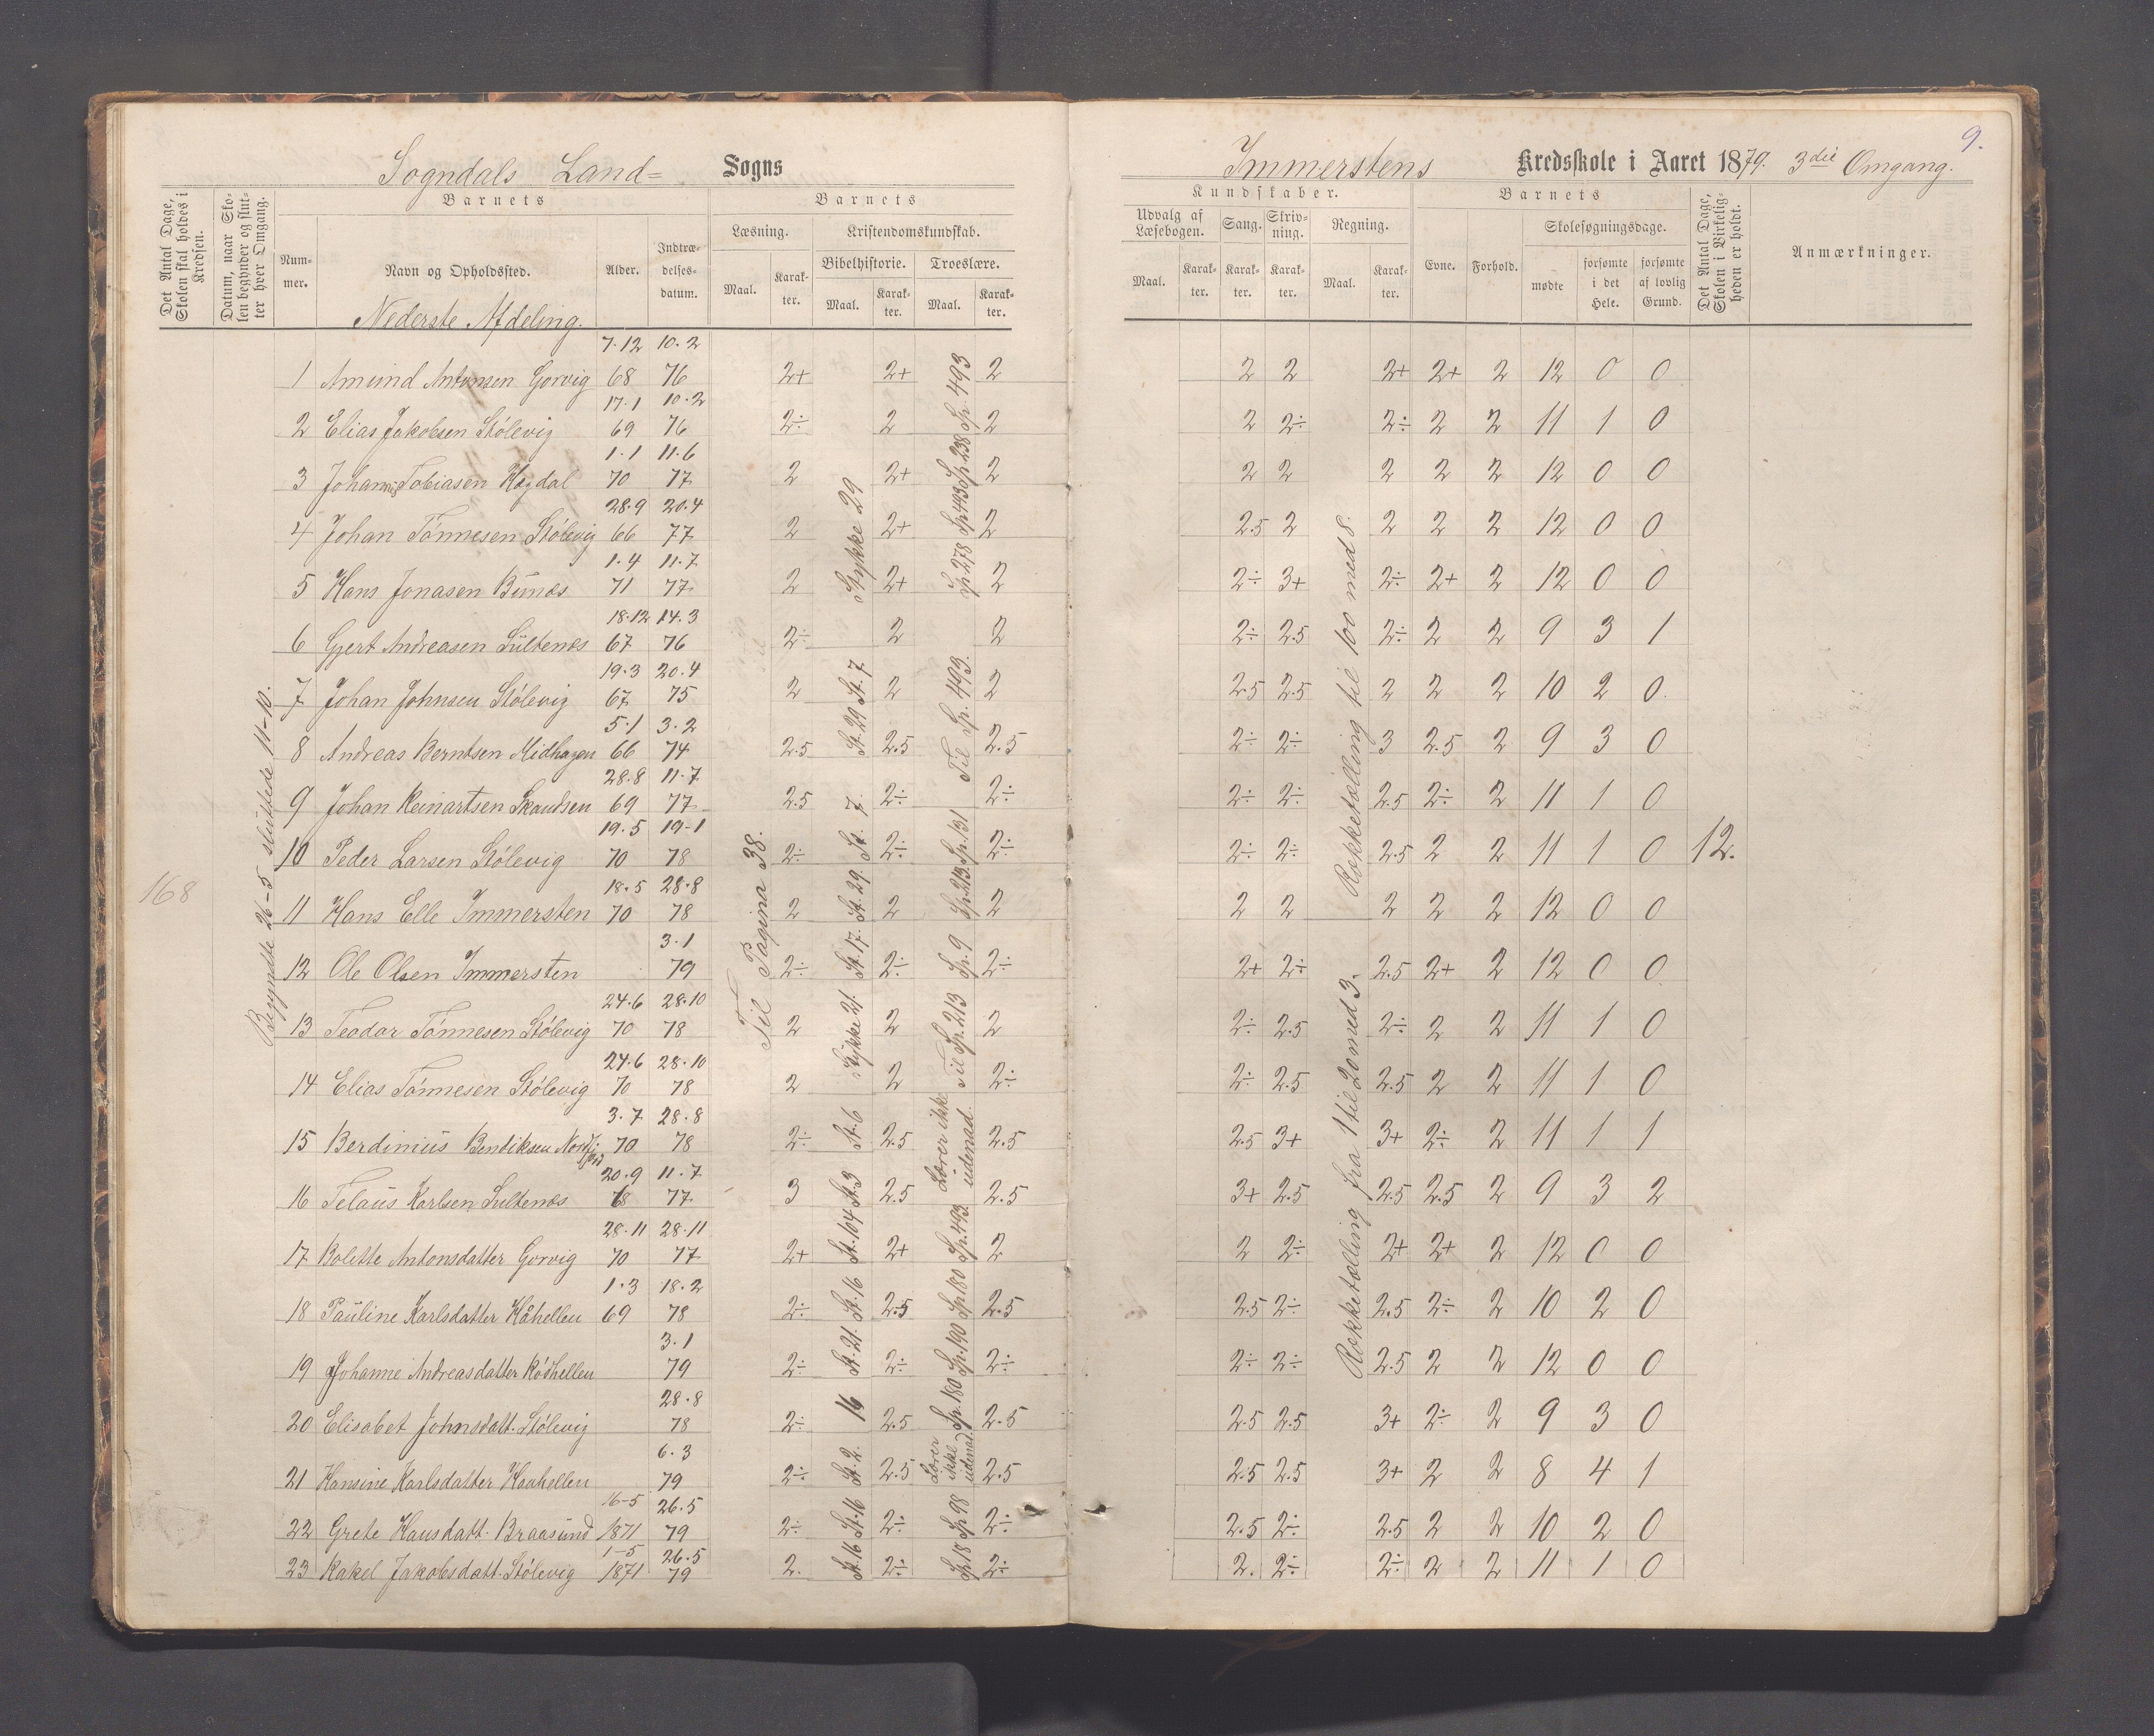 9.
Sogndals Land= Sogns
Immerstens Kredsskole i Aaret 1879. 3die Omgang.
Det Antal Dage, Skolen skal holdes i Kredsen.
Datum, naar Skolen begynder og slutter hver Omgang.
Barnets
Nummer.
Navn og Opholdssted.
Alder.
Indtrædelsesdatum.
Barnets
Læsning.
Maal.
Karakter.
Kristendomskundskab.
Bibelhistorie.
Maal.
Karakter.
Troeslære.
Maal.
Karakter.
Kundskaber.
Udvalg af Læsebogen.
Maal.
Karakter.
Sang.
Karakter.
Skrivning.
Karakter.
Regning.
Maal.
Karakter.
Barnets
Evne.
Forhold.
Skolesøgningsdage.
mødte
forsømte i det Hele.
forsømte af lovlig Grund.
Det Antal Dage, Skolen i Virkeligheden er holdt.
Anmærkninger.
Nederste Afdeling.
168
Begyndte 26-5 sluttede 11-10.
Til Pagina 38.
Stykke 29
Rækketælling til 100 med 8.
Rækketælling fra 1 til 20 med 3.
12.
1 Amund Antonsen Gorvig 7.12 68 10.2 76 2+ 2+ Sp. 493 2 2 2 2+ 2+ 2 12 0 0
2 Elias Jakobsen Stølevig 17.1 69 10.2 76 2÷ 2 2 2 2÷ 2÷ 2 2 11 1 0
3 Johannes Tobiasen Høgdal 1.1 70 11.6 77 2 2+ Sp. 238 2 2 2 2 2 2 12 0 0
4 Johan Tönnesen Stølevig 28.9 66 20.4 77 2 2+ Sp. 493 2 2.5 2 2 2 2 12 0 0
5 Hans Jonasen Bunes 1.4 71 11.7 77 2 2+ Sp. 278 2 2÷ 3+ 2÷ 2+ 2 12 0 0
6 Gjert Andreasen Sültenes 18.12 67 14.3 76 2÷ 2 2 2÷ 2.5 2÷ 2 2 9 3 1
7 Johan Johnsen Stølevig 19.3 67 20.4 75 2 St. 7 2 Til Sp. 493. 2 2.5 2.5 2 2 2 10 2 0
8 Andreas Berntsen Midhagen 5.1 66 3.2 74 2.5 St. 29 2.5 2.5 2÷ 2÷ 3 2.5 2 9 3 0
9 Johan Reinartsen Skandsen 28.8 69 11.7 77 2.5 2÷ 2÷ 2÷ 2÷ 2.5 2÷ 2 11 1 0
10 Peder Larsen Stølevig 19.5 70 19-1 78 2÷ St. 7. 2÷ Sp. 131 2÷ 2÷ 2÷ 2.5 2 2 11 1 0
11 Hans Elle Immersten 18.5 70 28.8 78 2 St. 29. 2 Sp. 213. 2 2 2 2 2 2 12 0 0
12 Ole Olsen Immersten 3.1 79 2÷ St. 17. 2÷ Sp. 9 2÷ 2+ 2÷ 2.5 2+ 2 12 0 0
13 Teodor Tönnesen Stølevig 24.6 70 28.10 78 2 Stykke 21. 2 Til Sp. 213 2 2÷ 2.5 2÷ 2 2 11 1 0
14 Elias Tönnesen Stølevig 24.6 70 28.10 78 2 2 2÷ 2÷ 2.5 2.5 2 2 11 1 0
15 Berdinius Bendiksen Nordfjord 3.7 70 28.8 78 2÷ St. 6 2.5 Lærer ikke udenad. 2.5 2.5 3+ 3+ 2÷ 2 11 1 1
16 Telaus Karlsen Sultenes 20.9 68 11.7 77 3 St. 3 2.5 2.5 3+ 2.5 2.5 2.5 2 9 3 2
17 Bolette Antonsdatter Gorvig 28.11 70 28.11 77 2+ St. 104 2+ Sp. 493 2 2 2÷ 2+ 2+ 2 12 0 0
18 Pauline Karlsdatter Kåhellen 1.3 69 18.2 78 2÷ St. 16 2.5 Sp. 180 2.5 2.5 2÷ 2.5 2÷ 2 10 2 0
19 Johanne Andreasdatter Rödhellen 3.1 79 2÷ St. 21. 2÷ Sp. 190 2÷ 2÷ 2÷ 2.5 2 2 12 0 0
20 Elisabet Johnsdatt. Stølevig 28.8 78 2÷ 16 2.5 Sp. 180 2.5 2.5 2.5 3+ 2÷ 2 9 3 0
21 Hansine Karlsdatter Kaahellen 6.3 79 2÷ St. 2. 2.5 Lærer ikke udenad 2.5 2.5 2.5 3+ 2 2 8 4 1
22 Grete Hansdatt. Braasund 16-5 1871 26.5 79 2÷ St. 16 2÷ Sp. 98 2÷ 2.5 2÷ 2.5 2 2 10 2 0
23 Rakel Jakobsdatt. Stølevig 1-5 1871 26.5 79 2. St. 16 2÷ Sp. 18 2÷ 2. 2÷ 2÷ 2 2 11 1 0